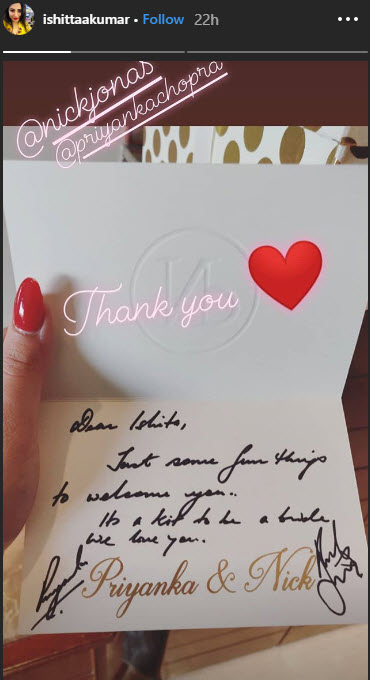 ishittaakumar • Follow 22h
@nickjonas
@priyankachopra
Thank you
Dear Ishita,
Just some fun things
to welcome you..
Its a kit to be a bride
We love you.
Priyanka & Nick